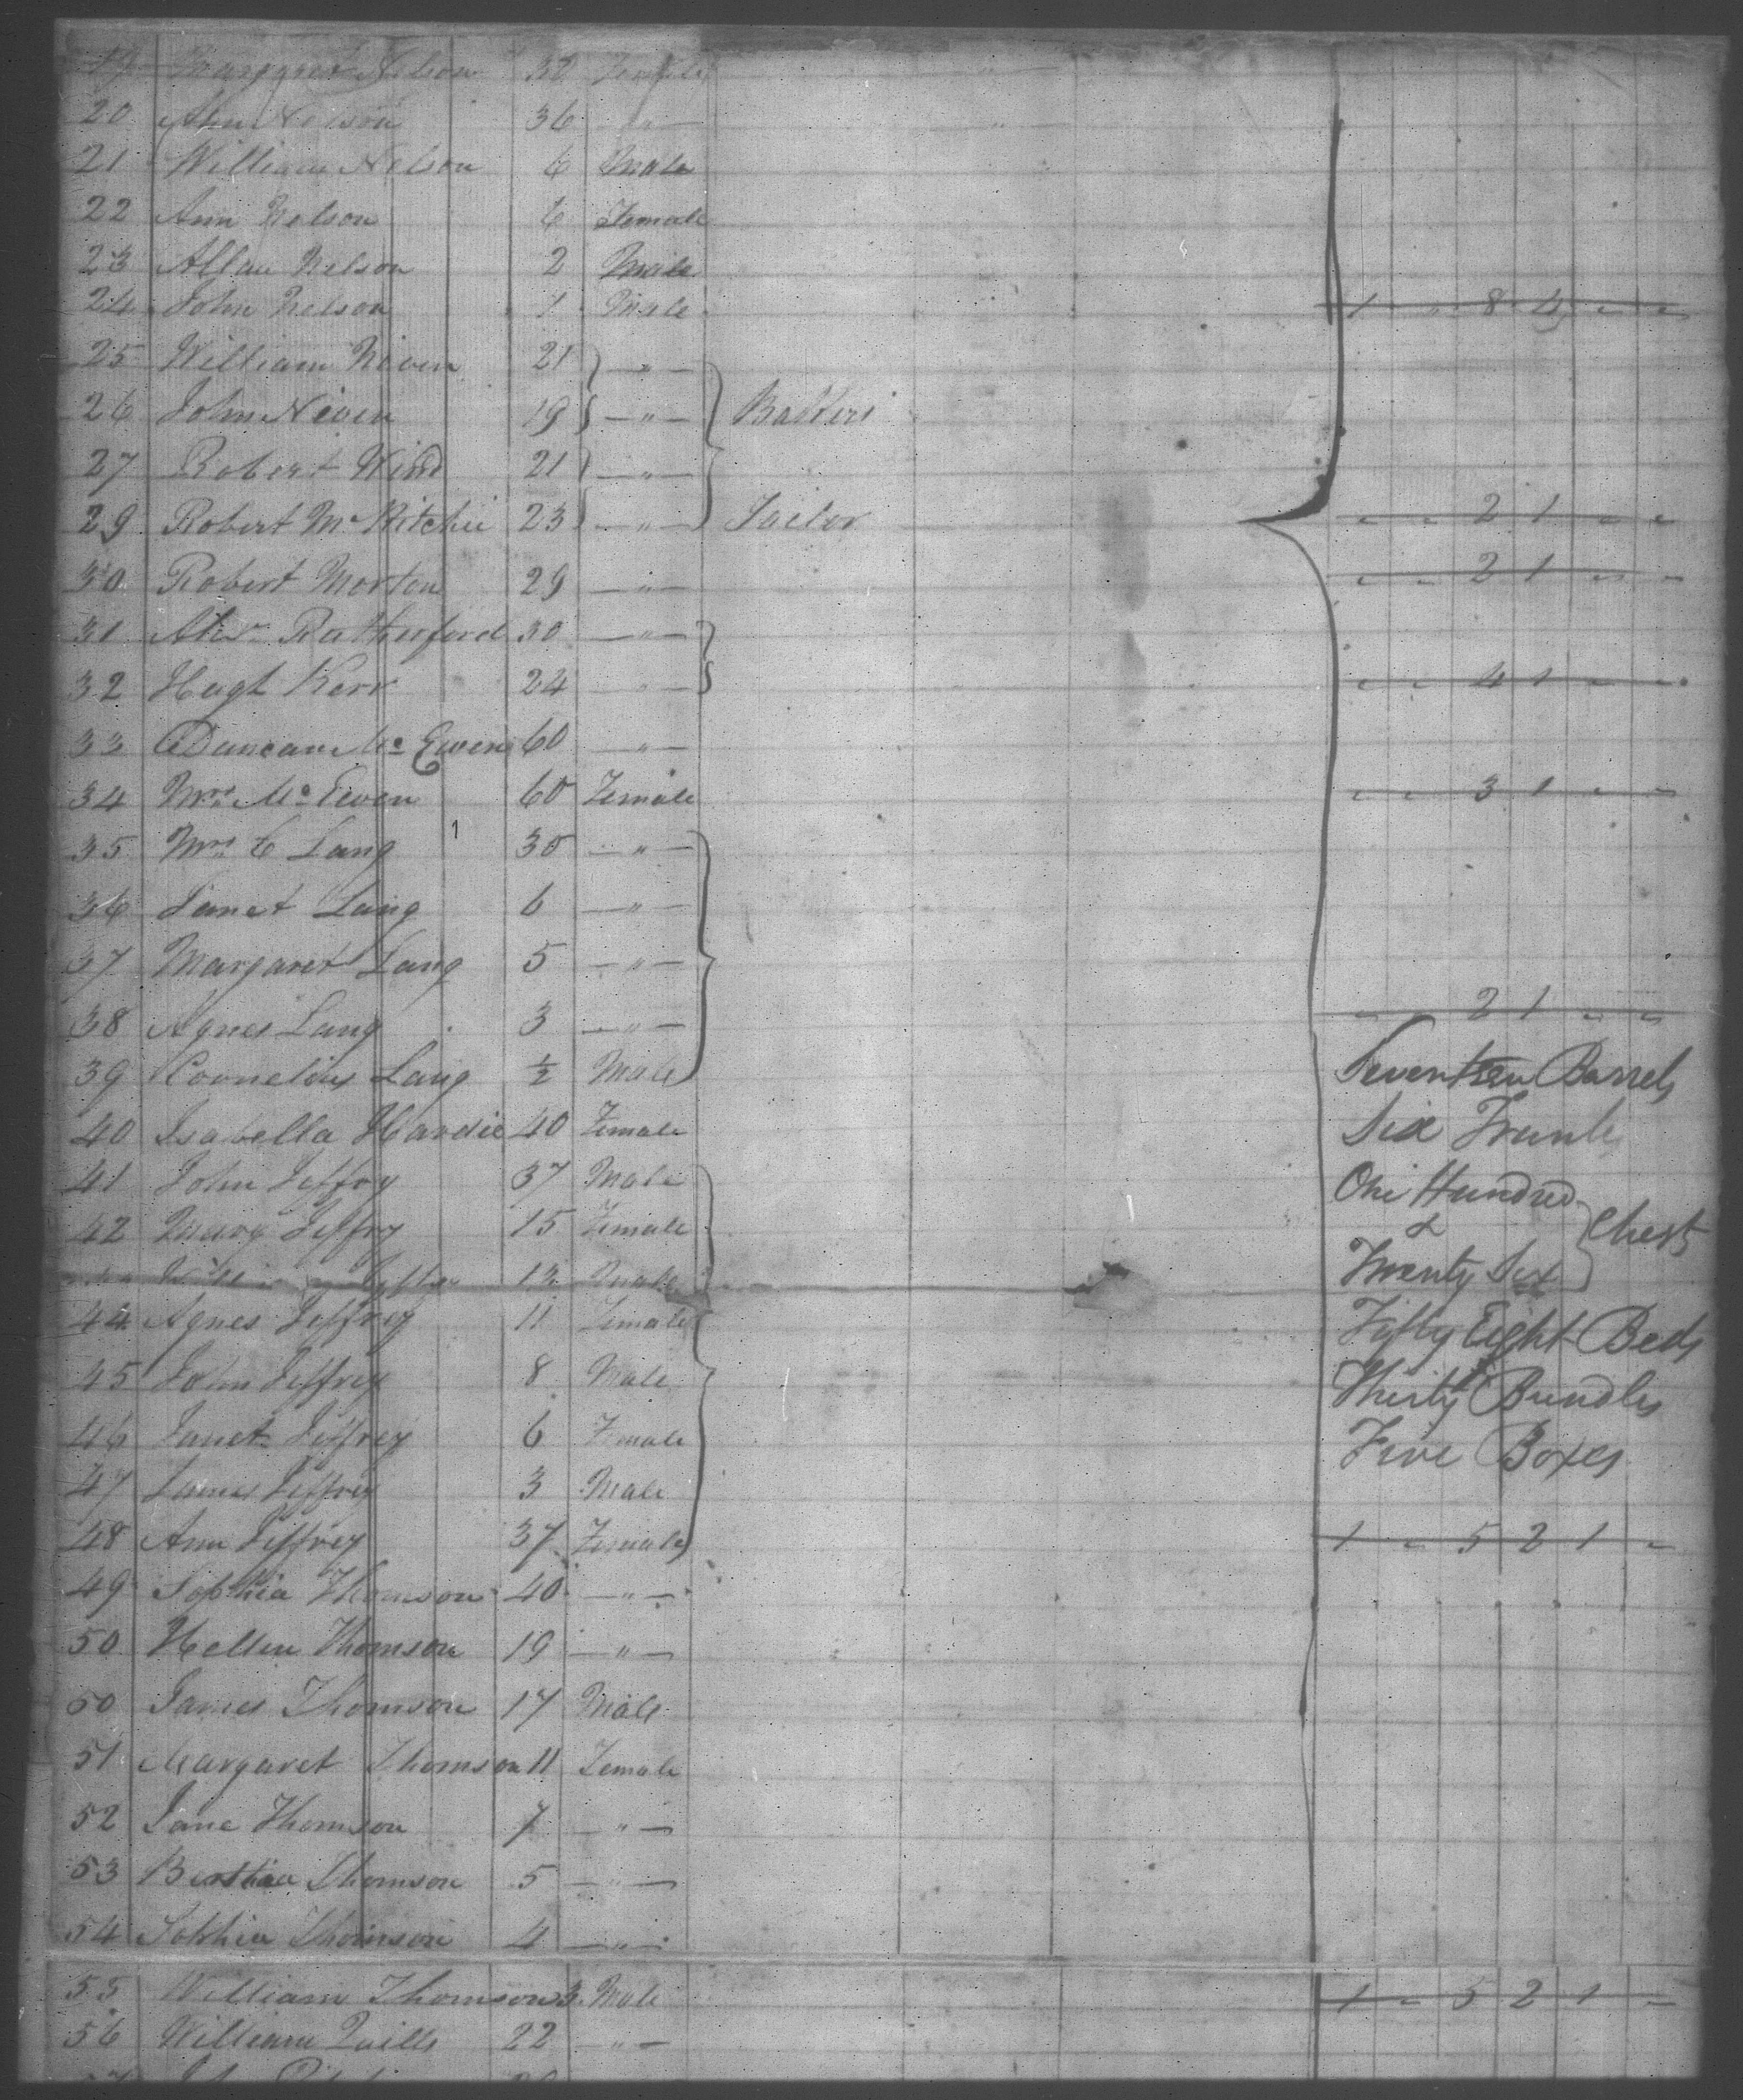 19 Margaret Nelson 32 Female
20 Ann Nelson 36 — " —
21 William Nelson 6 Male
22 Ann Nelson 6 Female
23 Allan Nelson 2 Male
24 John Nelson 1 Male 1 " 8 4 " "
25 William Niven 21 — " —
26 John Niven 19 — " —
27 Robert 21 — " —
29 Robert McRitchie 23 — " — Tailor " " 2 1 " "
30 Robert Morton 29 — " — " " 2 1 " "
31 Alexr Rutherford 30 — " —
32 Hugh Kerr 24 — " — " " 4 1 " "
33 Duncan Mc Ewen 60 — " —
34 Mrs Mc Ewen 60 Female " " 3 1 " "
35 Mrs C Lang 30 — " —
36 Janet Lang 6 — " —
37 Margaret Lang 5 — " —
38 Agnes Lang 3 — " — " 2 1 " "
39 Cornelius Lang ½ Male Seventeen Barrels
40 Isabella Hardie 40 Female Six Trunks
41 John Jeffrey 37 Male One Hundred
42 Mary Jeffrey 15 Female & Chests
Jeffrey 13 Male Twenty Six
44 Agnes Jeffrey 11 Female Fifty Eight Beds
45 John Jeffrey 8 Male Thirty Bundles
46 Janet Jeffrey 6 Female Five Boxes
47 James Jeffrey 3 Male
48 Ann Jeffrey 37 Female 1 " 5 2 1 "
49 Sophia Thomson 40 — " —
50 Hellen Thomson 19 — " —
50 James Thomson 17 Male
51 Margaret Thomson 11 Female
52 Jane Thomson 7 — " —
53 Thomson 5 — " —
54 Sophia Thomson 4 — " —
55 William Thomson 3 Male 1 " 5 2 1 "
56 William 22 — " —